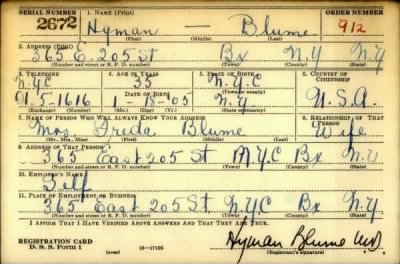 SERIAL NUMBER 1. NAME (Print) ORDER NUMBER
2672 Hyman — Blume 912
(First) (Middle) (Last)
2. ADDRESS (Print)
365 E. 205 St Bx N.Y N.Y
(Number and street or R. F. D. number) (Town) (County) (State)
3. TELEPHONE 4. AGE IN YEARS 5. PLACE OF BIRTH 6. COUNTRY OF CITIZENSHIP
NYC 35 N.Y.C
DATE OF BIRTH
5-1616 1-18-'05 N.Y U.S.A.
(Exchange) (Number) (Mo.) (Day) (Yr.) (State or country)
7. NAME OF PERSON WHO WILL ALWAYS KNOW YOUR ADDRESS 8. RELATIONSHIP OF THAT PERSON
Mrs. Freda Blume Wife
(Mr., Mrs., Miss) (First) (Middle) (Last)
9. ADDRESS OF THAT PERSON
365 East 205 St N.Y.C Bx N.Y
(Number and street or R. F. D. number) (Town) (County) (State)
10. EMPLOYER'S NAME
Self
11. PLACE OF EMPLOYMENT OR BUSINESS
365 East 205 St NYC Bx N.Y
(Number and street or R. F. D. number) (Town) (County) (State)
I AFFIRM THAT I HAVE VERIFIED ABOVE ANSWERS AND THAT THEY ARE TRUE.
REGISTRATION CARD
D. S. S. Form 1 (over) 16—17105 Hyman Blume M.D
(Registrant's signature)